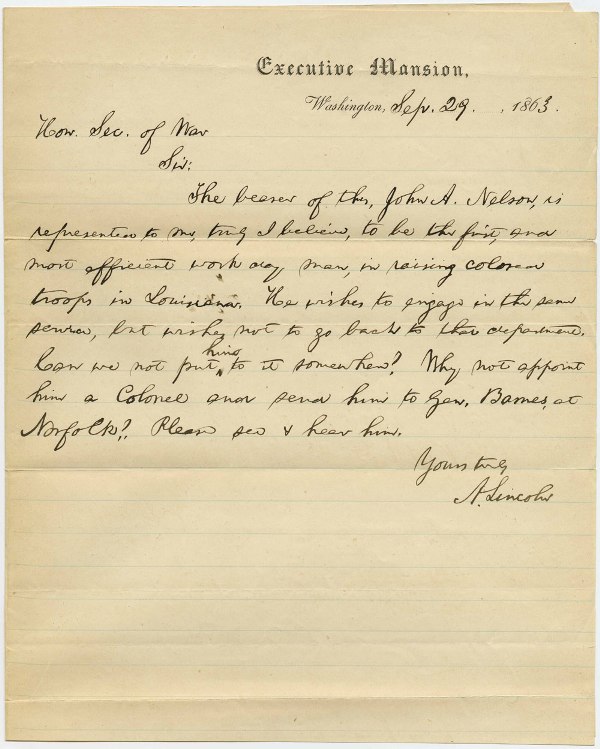 Executive Mansion,
Washington, Sep. 29, 1863.
Hon. Sec. of War
Sir:
The bearer of this, John A. Nelson, is
represented to me, truly I believe, to be the first, and
most efficient working man, in raising colored
troops in Louisiana. He wishes to engage in the same
service, but wishes not to go back to that department.
Can we not put him to it somewhere? Why not appoint
him a Colonel and send him to Gen. Barnes, at
Norfolk? Please see & hear him.
Yours truly
A. Lincoln